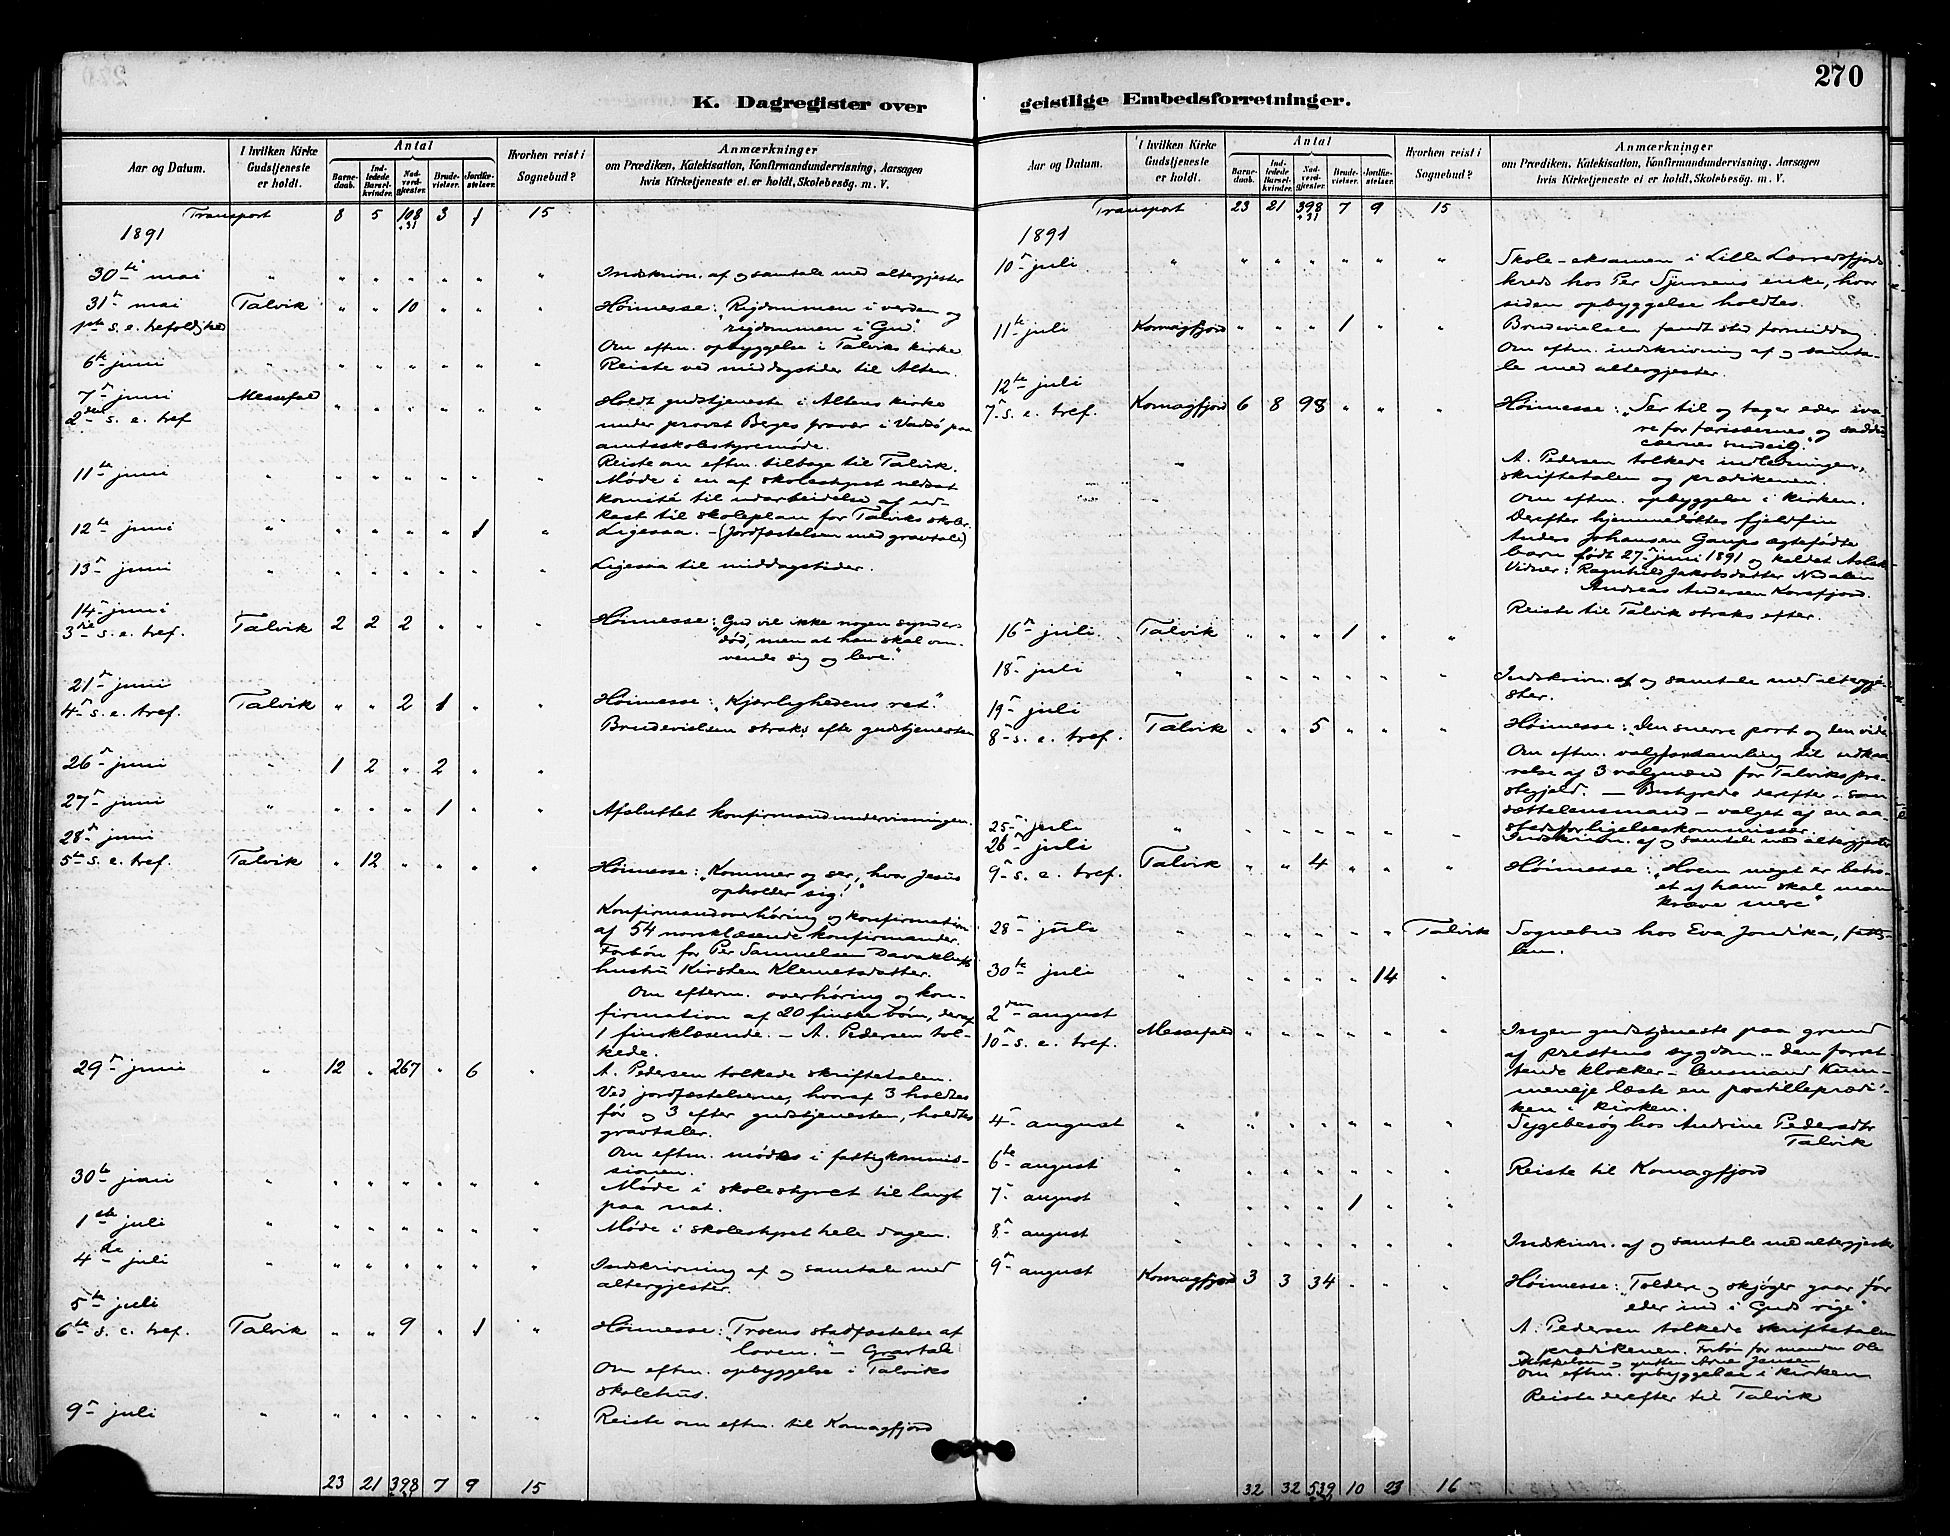 270
K. Dagregister over geistlige Embedsforretninger.
Aar og Datum. I hvilken Kirke Gudstjeneste er holdt. Antal Barnedaab. Indledede Barselkvinder. Nadverdgjester. Brudevielser. Jordfæstelser. Hvorhen reist i Sognebud? Anmærkninger om Prædiken, Katekisation, Konfirmandundervisning, Aarsagen hvis Kirketjeneste ei er holdt, Skolebesøg. m. V.
Transport 8 5 108 3 1 15
+31
1891
30te mai " " " " " " " Indskrivn. af og samtale med altergjester
31te mai Talvik " " 10 " " " Høimesse: "Rigdommen i verden og
1ste s. e. trefoldighed rigdommen i Gud."
Om eftm. opbyggelse i Talviks kirke
6te juni " " " " " " " Reiste ved middagstider til Alten.
7de juni Messefald
2den s. e. tref " " " " " " Holdt gudstjeneste i Altens kirke
under provst Berges fravær i Vadsø paa
amtsskolestyremøde.
Reiste om eftm. tilbage til Talvik.
11te juni " " " " " " " Møde i en af skolestyret nedsat
komité til udarbeidelse af ud-
kast til skoleplan for Talviks skoler.
12te juni " " " " " 1 " Ligesaa. – (Jordfæstelsen med gravtale)
13de juni " " " " " " " Ligesaa til middagstider.
14de juni
3die s. e. tref. Talvik 2 2 2 " " " Høimesse: "Gud vil ikke nogen synders
død, men at han skal om-
vende sig og leve."
21de juni
4de s. e. tref. Talvik " " 2 1 " " Høimesse: "Kjærlighedens ret."
Brudevielsen straks efte gudstjenesten
26de juni " 1 2 " 2 " "
27de juni " " " " 1 " " Afsluttet konfirmandundervisningen.
28de juni
5te s. e. tref. Talvik " 12 " " " " Høimesse: "Kommer og ser, hvor Jesus
opholder sig!"
Konfirmandoverhøring og konfirmation
af 54 norsklæsende konfirmander.
Forbøn for Per Samuelsen
hustru Kirsten Klemetsdatter.
Om efterm. overhøring og kon-
firmation af 20 finske børn, deraf
1 finsklæsende. – A. Pedersen tol-
kede.
29de juni " 12 " 267 " 6 " A. Pedersen tolkede skriftetalen.
Ved jordfæstelserne, hvoraf 3 holdtes
før og 3 efter gudstjenesten, holdtes
gravtaler.
Om eftm. møde i fattigkommis-
sionen.
30te juni " " " " " " " Møde i skolestyret til langt
paa nat.
1ste juli " " " " " " " Møde i skolestyret hele dagen.
4de juli " " " " " " " Indskrivning af og samtale med
altergjester.
5te juli
6te s. e. tref. Talvik " " 9 " 1 " Høimesse: "Troens stadfæstelse af
loven." – Gravtale
Om eftm. opbyggelse i Talviks
skolehus.
9de juli " " " " " " " Reiste om eftm. til Komagfjord
23 21 398 7 9 15
Aar og Datum. I hvilken Kirke Gudstjeneste er holdt. Antal Barnedaab. Indledede Barselkvinder. Nadverdgjester. Brudevielser. Jordfæstelser. Hvorhen reist i Sognebud? Anmærkninger om Prædiken, Katekisation, Konfirmandundervisning, Aarsagen hvis Kirketjeneste ei er holdt, Skolebesøg. m. V.
Transport 23 21 398 7 9 15
+31
1891
10de juli " " " " " " " Skole-eksamen i Lille Lerresfjords
kreds hos Per enke, hvor
siden opbyggelse holdtes.
11te juli Komagfjord " " " 1 " " Brudevielsen fandt sted formiddag
Om eftm. indskrivning af og samta-
le med altergjester.
12te juli
7de s. e. tref. Komagfjord 6 8 98 " " " Høimesse: "Ser til og tager eder iva-
re for farisæernes og saddu-
cæernes surdeig."
A. Pedersen tolkede indledningen,
skriftetalen og prædikenen.
Om eftm. opbyggelse i kirken.
Derefter hjemmedøbtes fjeldfin
Anders Johansen Gaups ægtefødte
barn født 27de juni 1891 og kaldet Aslak
Vidner: Ragnhild Jakobsdatter
Andreas Andersen Korsfjord.
Reiste til Talvik straks efter.
16de juli. Talvik " " " 1 " "
18de juli " " " " " " " Indskrivn. af og samtale med altergje-
ster.
19de juli
8de s. e. tref. Talvik " " 5 " " " Høimesse: "Den snevre port og den vide"
Om eftm. valgforsamling til udkaa-
relse af 3 valgmænd for Talviks præ-
stegjeld. – Bestyrede derefter som
sættelensmand – valget af en
forligelseskommissær.
25de juli " " " " " " " Indskrivn. af og samtale med altergjester
26de juli
9de s. e. tref. Talvik " " 4 " " " Høimesse: "Hvem meget er betro-
et af ham skal man
kræve mere"
28de juli " " " " " " Talvik Sognebud hos Eva
lem.
30te juli " " " " " 14 "
2den august
10de s. e. tref. Messefald " " " " " " Ingen gudstjeneste paa grund
af prestens sygdom. – Den forret-
tende klokker – lensmand
læste en postilleprædi-
ken i kirken.
4de august " " " " " " " Sygebesøg hos Andrine Pedersdtr
Talvik
6te august " " " " " " " Reiste til Komagfjord
7de august " " " " 1 " "
8de august " " " " " " " Indskrivn. af og samtale med altergjester
9de august Komagfjord 3 3 34 " " " Høimesse: "Toldere og skjøger gaar før
eder ind i Guds rige"
A. Pedersen tolkede skriftetalen
og prædikenen. Forbøn for manden Ole
Mikkelsen og gutten Arne Jensen
Om eftm. opbyggelse i kirken
Reiste derefter til Talvik
32 32 539 10 23 16